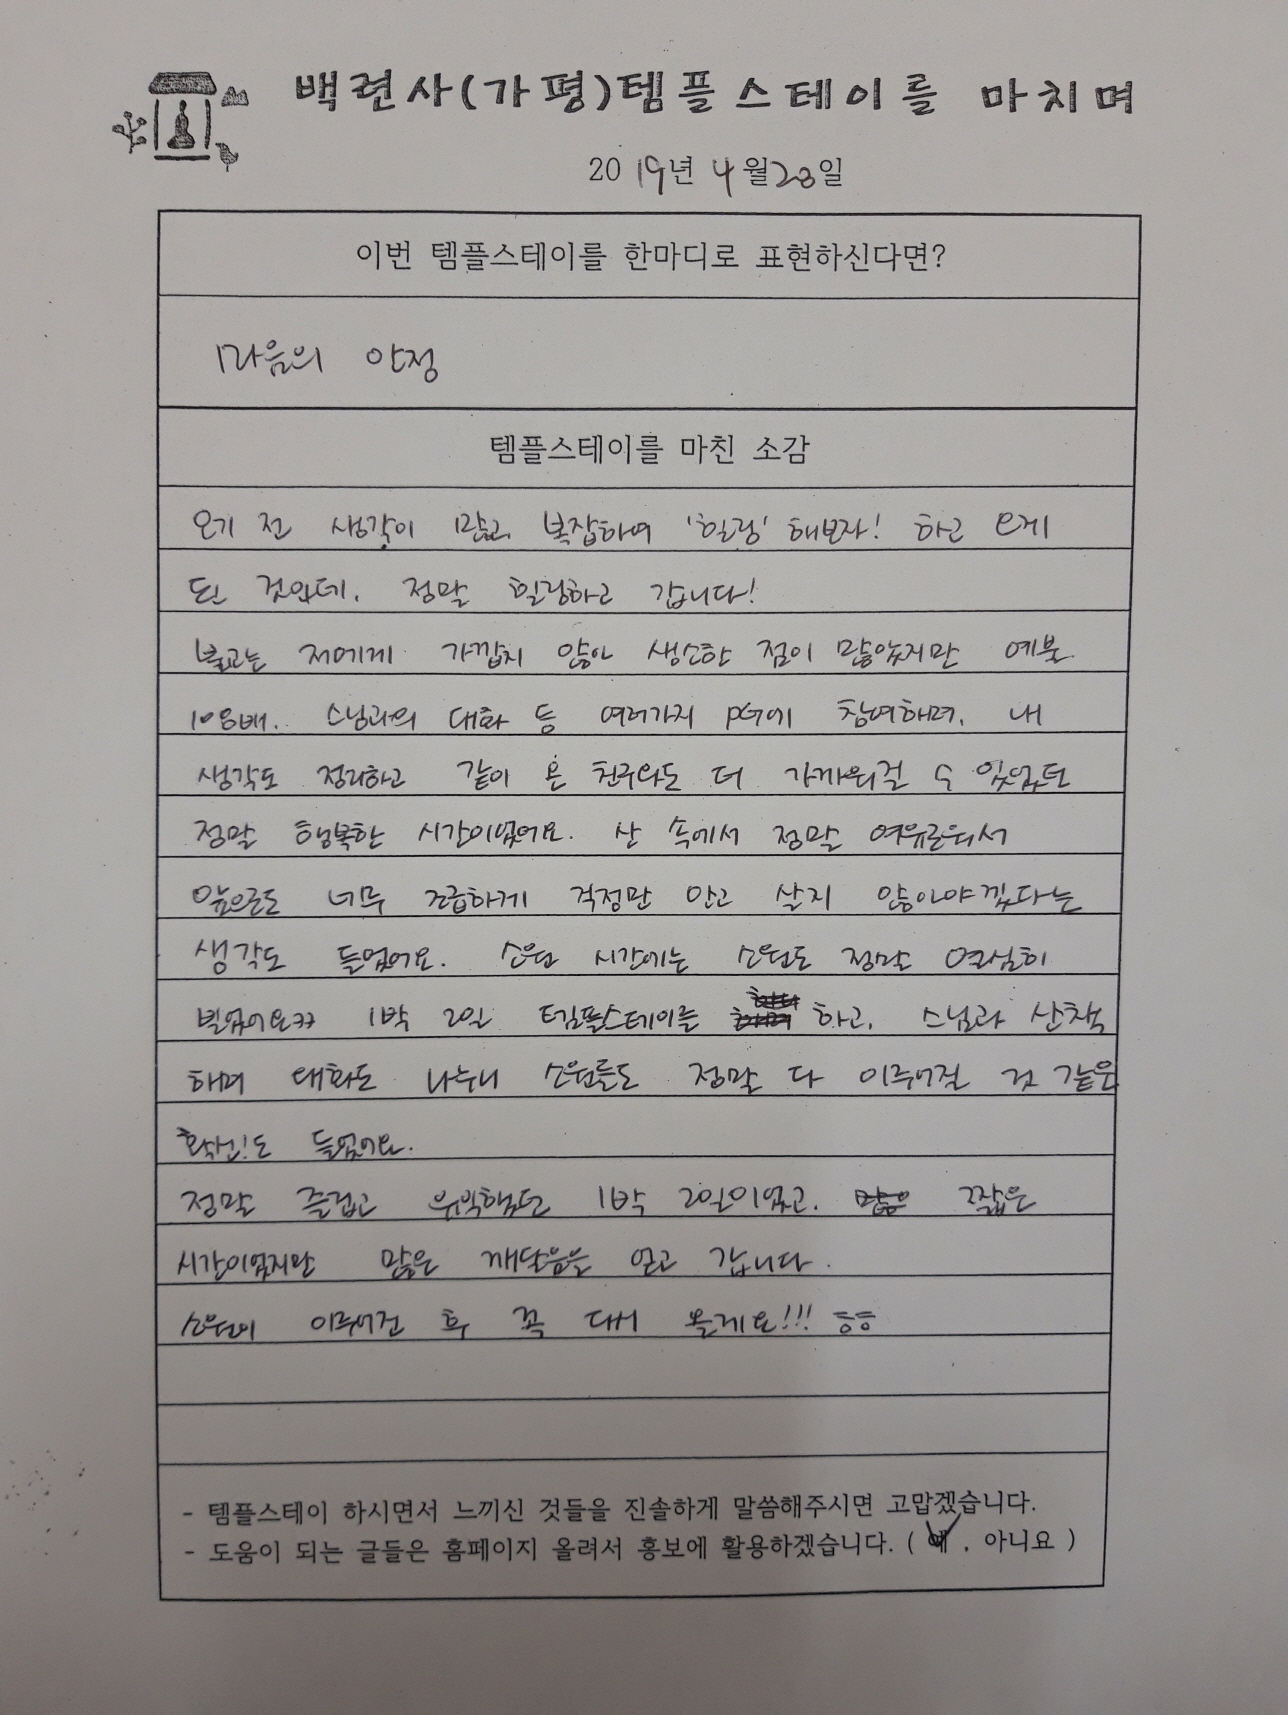 백련사(가평)템플스테이를 마치며
2019년 4월 23일
이번 템플스테이를 한마디로 표현하신다면?
마음의 안정
템플스테이를 마친 소감
오기 전 생각이 많고 복잡하여 '힐링' 해보자! 하고 오게
된 것인데, 정말 힐링하고 갑니다!
불교는 저에게 가깝지 않아 생소한 점이 많았지만 예불,
108배, 스님과의 대화 등 여러가지 PG에 참여하며, 내
생각도 정리하고 같이 온 친구와도 더 가까워질 수 있었던
정말 행복한 시간이었어요. 산 속에서 정말 여유로워서
앞으로도 너무 조급하게 걱정만 안고 살지 않아야겠다는
생각도 들었어요. 소원 시간에는 소원도 정말 열심히
빌었어요ㅋㅋ 1박 2일 템플스테이를 하고, 스님과 산책
하며 대화도 나누니 소원들도 정말 다 이루어질 것 같은
확신!도 들었어요.
정말 즐겁고 유익했던 1박 2일이었고, 짧은
시간이었지만 많은 깨달음을 얻고 갑니다.
소원이 이루어진 후 꼭 다시 올게요!!! ㅎㅎ
- 템플스테이 하시면서 느끼신 것들을 진솔하게 말씀해주시면 고맙겠습니다.
- 도움이 되는 글들은 홈페이지 올려서 홍보에 활용하겠습니다. ( 예 , 아니요 )